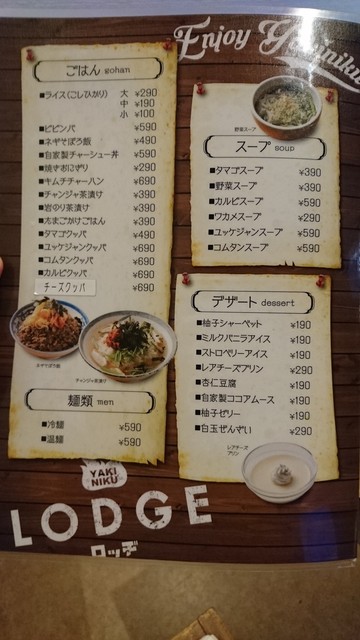 Enjoy Yakiniku
ごはん gohan
■ライス(こしひかり) 大 ¥290
中 ¥190
小 ¥100
■ビビンバ ¥590
■ネギそぼろ飯 ¥490
■自家製チャーシュー丼 ¥590
■焼きおにぎり ¥290
■キムチチャーハン ¥690
■チャンジャ茶漬け ¥390
■岩のり茶漬け ¥390
■たまごかけごはん ¥390
■タマゴクッパ ¥490
■ユッケジャンクッパ ¥690
■コムタンクッパ ¥690
■カルビクッパ ¥690
チーズクッパ ¥690
ネギそぼろ飯
チャンジャ茶漬け
麺類 men
■冷麺 ¥590
■温麺 ¥590
野菜スープ
スープ soup
■タマゴスープ ¥390
■野菜スープ ¥390
■カルビスープ ¥590
■ワカメスープ ¥290
■ユッケジャンスープ ¥590
■コムタンスープ ¥590
デザート dessert
■柚子シャーベット ¥190
■ミルクバニラアイス ¥190
■ストロベリーアイス ¥190
■レアチーズプリン ¥290
■杏仁豆腐 ¥190
■自家製ココアムース ¥190
■柚子ゼリー ¥190
■白玉ぜんざい ¥290
レアチーズ
プリン
YAKI
NIKU
LODGE
ロッヂ